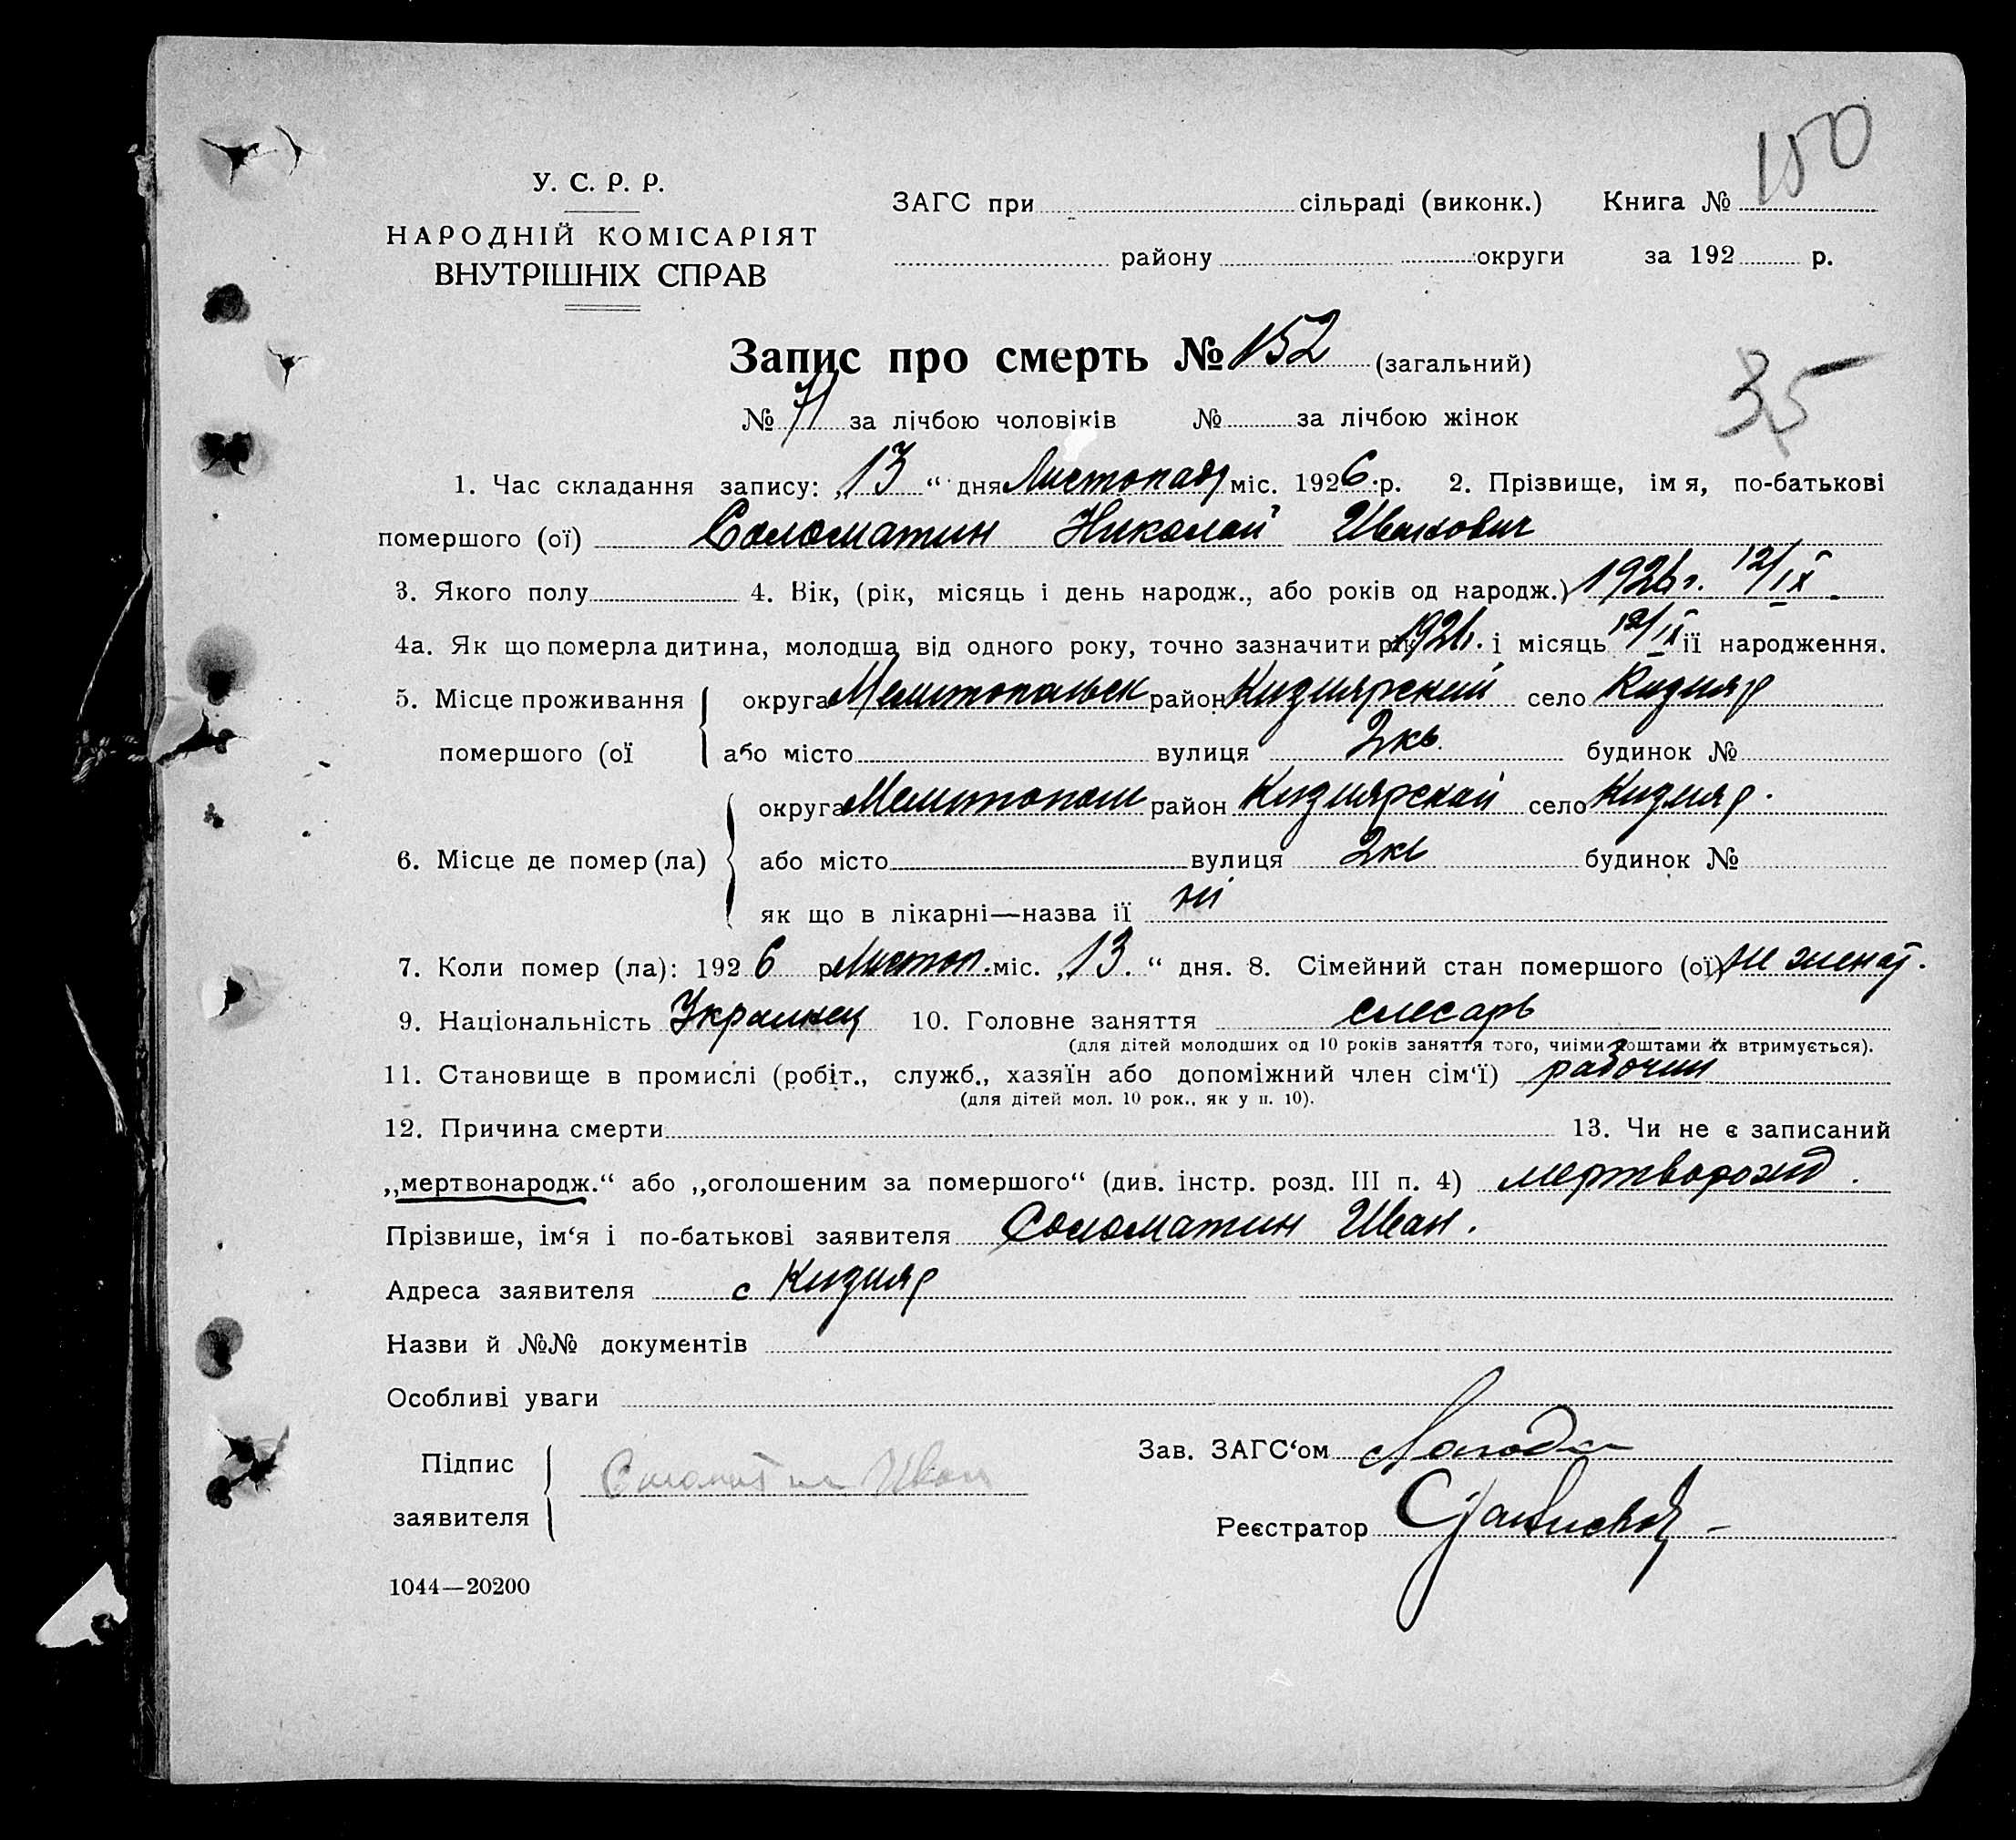 150
У. С. Р. Р.
НАРОДНІЙ КОМІСАРІЯТ
ВНУТРІШНІХ СПРАВ
ЗАГС при сільраді (виконк.) Книга №
району округи за 192 р.
Запис про смерть № 152 (загальний)
35
№ 71 за лічбою чоловіків № за лічбою жінок
1. Час складання запису: „13“ дня Листопад міс. 1926 р. 2. Прізвище, імя, по-батькові
помершого (ої) Соломатин Николай Иванович
3. Якого полу 4. Вік, (рік, місяць і день народж., або років од народж.) 1926 г. 12/IX
4а. Як що померла дитина, молодша від одного року, точно зазначити рік 1926. і місяць 12/IX її народження.
5. Місце проживання округа Мелитопольск район Кизиярский село Кизияр
помершого (ої або місто вулиця 2кв. будинок №
округа Мелитопол район Кизиярский село Кизияр.
6. Місце де помер (ла) або місто вулиця 2кв будинок №
як що в лікарні—назва її ні
7. Коли помер (ла): 1926 р Листоп. міс. „13.“ дня. 8. Сімейний стан помершого (ої) не женат.
9. Національність Украинец 10. Головне заняття слесарь
(для дітей молодших од 10 років заняття того, чиїми коштами їх втримується).
11. Становище в промислі (робіт., служб., хазяїн або допоміжний член сім‘ї) рабочий
(для дітей мол. 10 рок., як у п. 10).
12. Причина смерти 13. Чи не є записаний
„мертвонародж.“ або „оголошеним за помершого“ (див. інстр. розд. III п. 4) мертворожд.
Прізвише, ім‘я і по-батькові заявителя Соломатин Иван.
Адреса заявителя с Кизияр
Назви й №№ документів
Особливі уваги
Підпис
заявителя Соломатин Иван
Зав. ЗАГС‘ом
Реєстратор
1044—20200